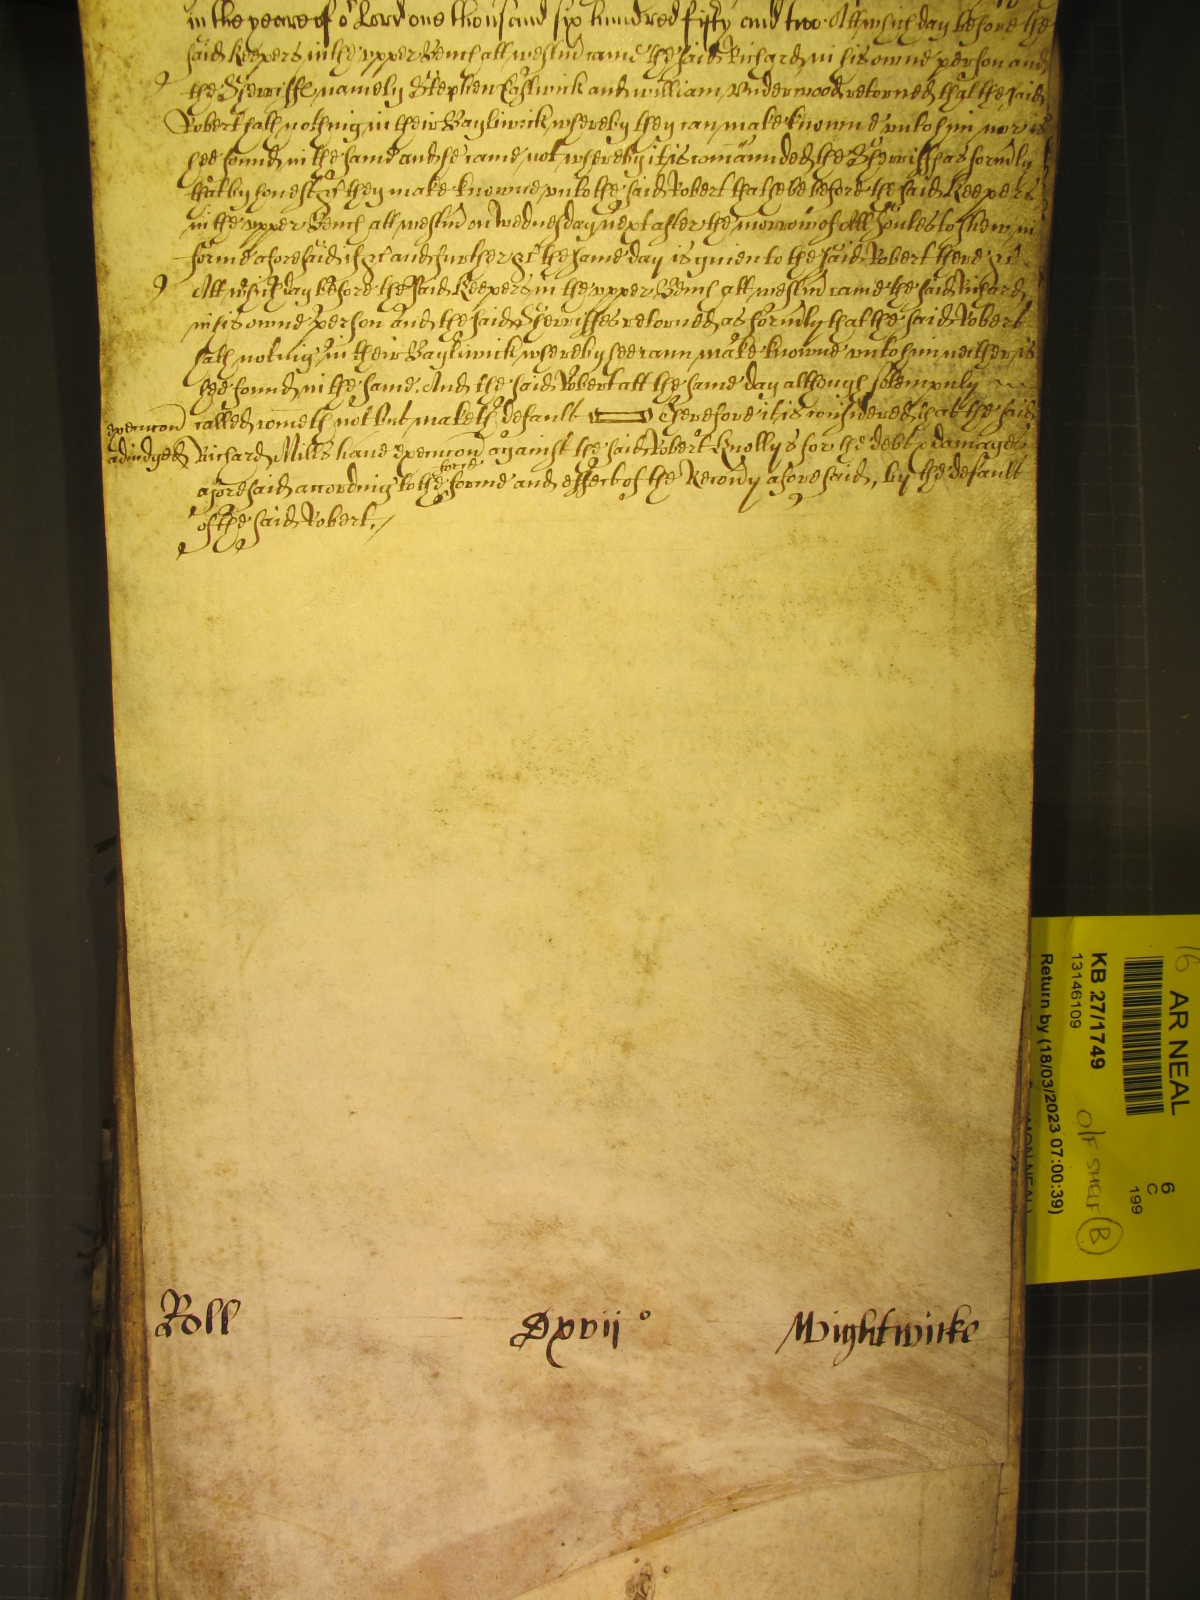 in the yeare of or Lord one thousand six hundred fifty and two. Att which day before the
said Keepers in the vpper Bench att westmr came the said Richard in his owne person and
the Sherriffe, namely Stephen Estwick and william Vnderwood retorned that the said
Robert hath nothing in their Bayliwick whereby they can make knowne vnto him nor is
hee found in the same and he came not whereby it is comaunded the Sherriffs as formly
that by honest &c they make knowne vnto the said Robert that he be before the said Keepers
in the vpper Bench att westmr on Wednesday next after the morrow of All Soules to shew in
forme aforesaid if &c and further &c the same day is giuen to the said Robert there &c
Att which day before the said Keepers in the vpper Bench att westmr came the said Richard
in his owne person and the said Sherriffes retorned as formly that the said Robert
hath nothing in their Bayliwick whereby hee cann make knowne vnto him neither is
hee found in the same. And the said Robert att the same day although solempnly
called cometh not but maketh default Therefore it is considered that the said
execucon
adiudged
Richard Mills haue execucon against the said Robert Knollys for the debt & damages
aforesaid according to the force forme and effect of the Recovy aforesaid, by the default
of the said Robert./
Roll Dxvij o Wightwicke
16 AR NEAL
KB 27/1749
13146109
Return by (18/03/2023 07:00:39)
O/F SHELF B
6
C
199